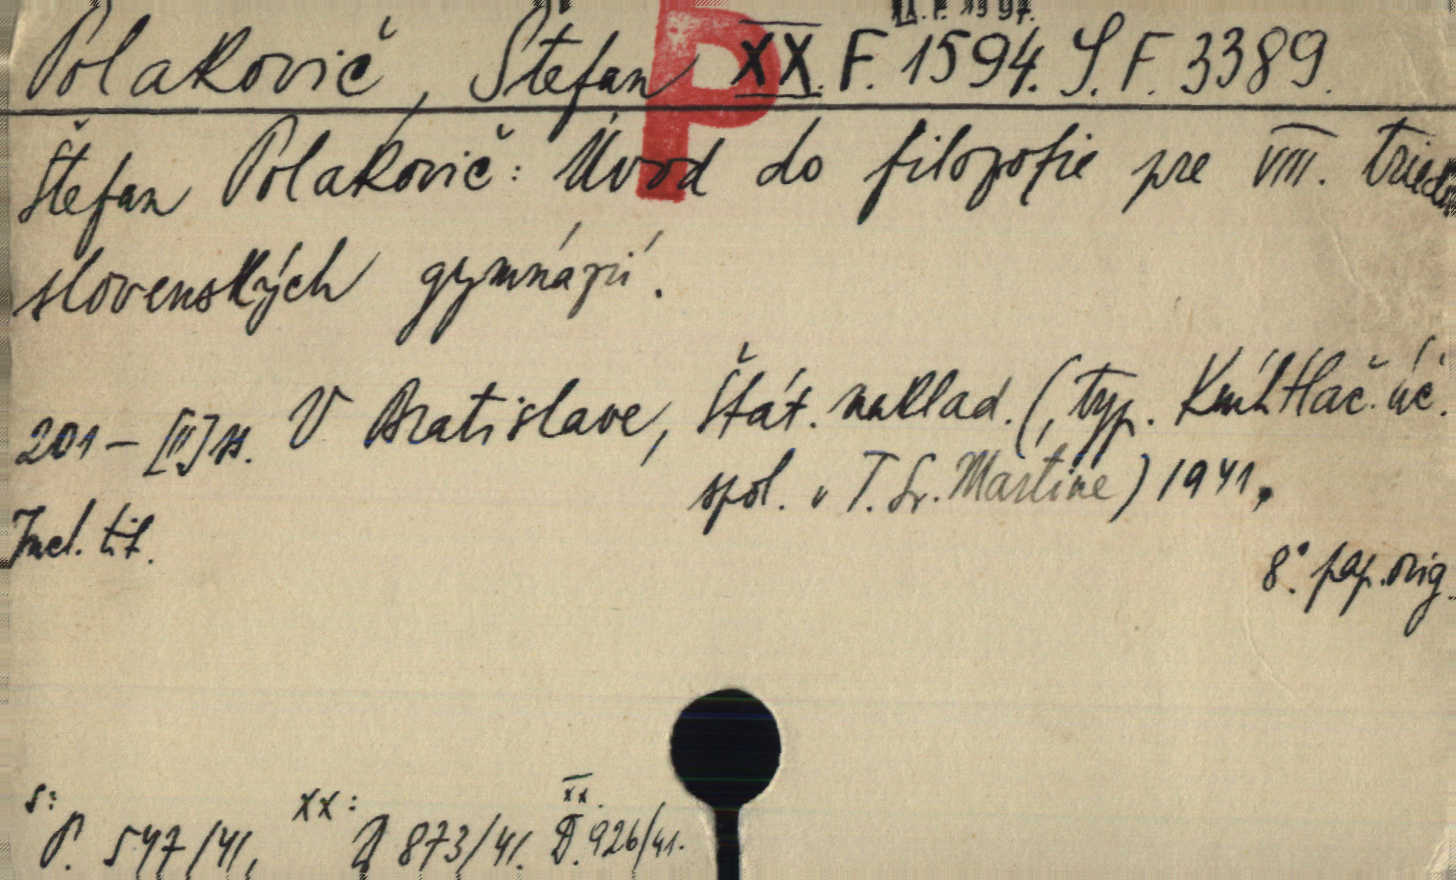 Polakovič, Štefan P XX. F. 1594. S. F. 3389.
Štefan Polakovič: Úvod do filozofie pre VIII. tried
slovenských gymnázií.
201 – [II] s. V Bratislave, Štát. naklad. (, typ. Kníhtlač. úč.
spol. v T. Sv. Martine) 1941.
Incl. tit.
8°. pap. orig.
S: XX: XX.
P. 547/41, D 873/41. D. 926/41.